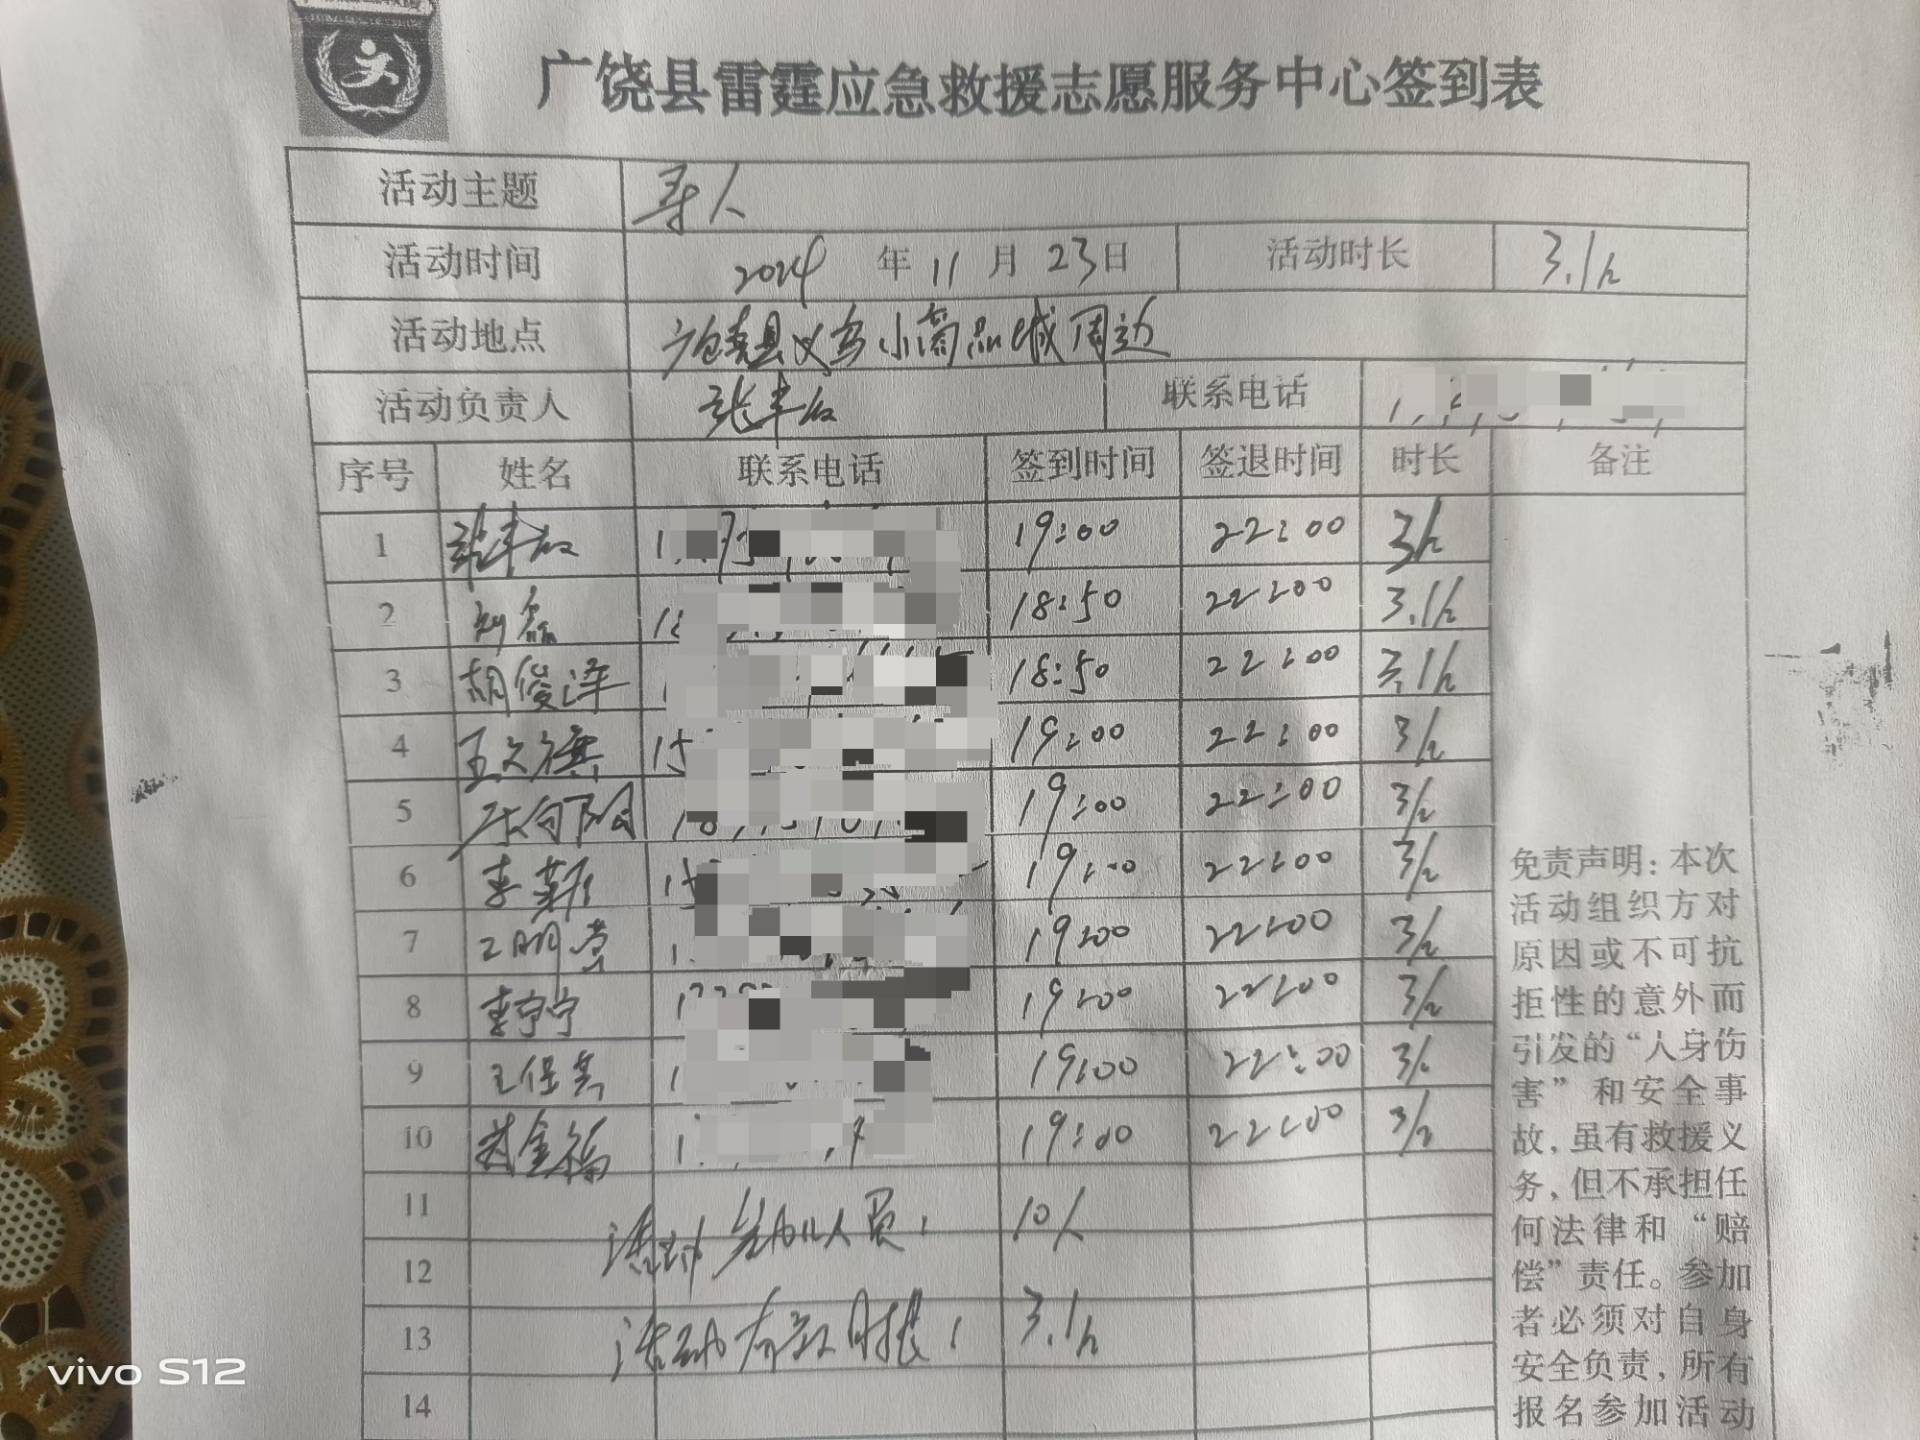 广饶县雷霆应急救援志愿服务中心签到表
活动主题 寻人
活动时间 2024 年 11 月 23 日 活动时长 3.1h
活动地点 广饶县义乌小商品城周边
活动负责人 张丰收 联系电话
序号 姓名 联系电话 签到时间 签退时间 时长 备注
1 张丰收 19:00 22:00 3h
2 刘磊 18:50 22:00 3.1h
3 胡俊泽 18:50 22:00 3.1h
4 王文 19:00 22:00 3h
5 向阳 19:00 22:00 3h
6 李 19:00 22:00 3h
7 王明 19:00 22:00 3h
8 李宁宁 19:00 22:00 3h
9 王保 19:00 22:00 3h
10 金福 19:00 22:00 3h
11 活动参加人员: 10人
12
13 活动有效时长: 3.1h
14
免责声明:本次
活动组织方对
原因或不可抗
拒性的意外而
引发的“人身伤
害”和安全事
故,虽有救援义
务,但不承担任
何法律和“赔
偿”责任。参加
者必须对自身
安全负责,所有
报名参加活动
vivo S12